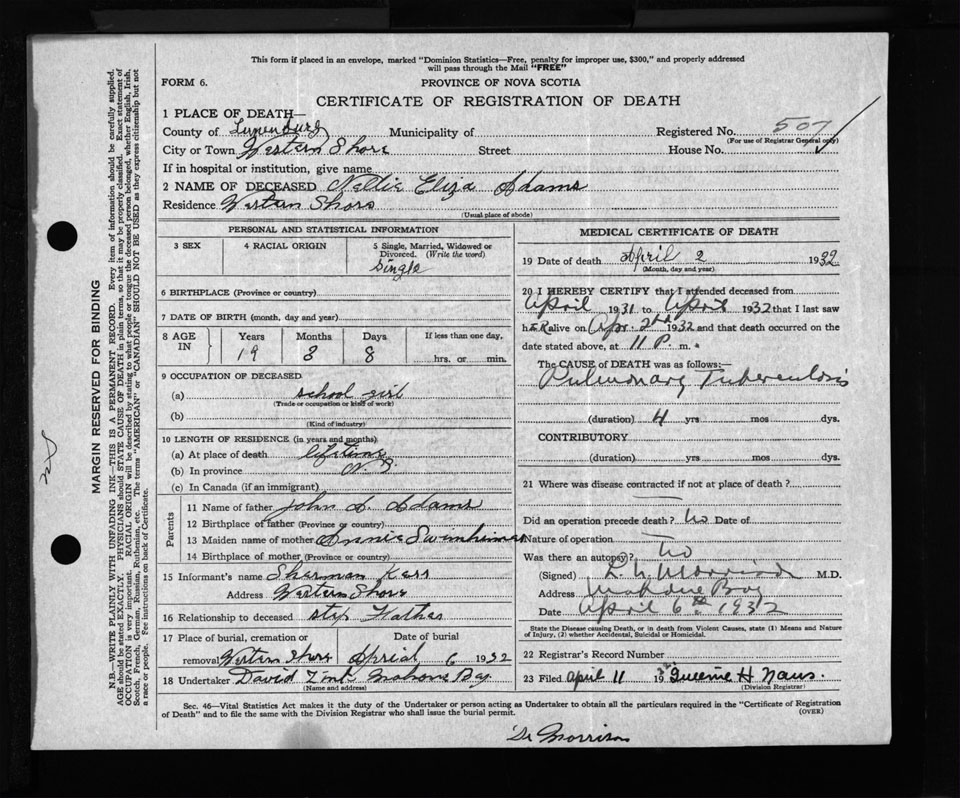 This form if placed in an envelope, marked "Dominion Statistics—Free, penalty for improper use, $300," and properly addressed
will pass through the Mail "FREE"
FORM 6. PROVINCE OF NOVA SCOTIA
CERTIFICATE OF REGISTRATION OF DEATH
1 PLACE OF DEATH—
County of Lunenburg Municipality of Registered No. 507
(For use of Registrar General only)
City or Town Western Shore Street House No.
If in hospital or institution, give name
2 NAME OF DECEASED Nellie Eliza Adams
Residence Western Shore
(Usual place of abode)
PERSONAL AND STATISTICAL INFORMATION
3 SEX 4 RACIAL ORIGIN 5 Single, Married, Widowed or
Divorced. (Write the word)
Single
6 BIRTHPLACE (Province or country)
7 DATE OF BIRTH (month, day and year)
8 AGE IN Years Months Days If less than one day,
19 3 8 hrs. or min.
9 OCCUPATION OF DECEASED
(a) school girl
(Trade or occupation or kind of work)
(b)
(Kind of industry)
10 LENGTH OF RESIDENCE (in years and months)
(a) At place of death lifetime
(b) In province N.S.
(c) In Canada (if an immigrant)
Parents
11 Name of father John S. Adams
12 Birthplace of father (Province or country)
13 Maiden name of mother Annie
14 Birthplace of mother (Province or country)
15 Informant's name Sherman
Address Western Shore
16 Relationship to deceased step Father
17 Place of burial, cremation or Date of burial
removal Western Shore April 6 1932
18 Undertaker David Zink Mahone By.
(Name and address)
MEDICAL CERTIFICATE OF DEATH
19 Date of death April 2 1932
(Month, day and year)
20 I HEREBY CERTIFY that I attended deceased from
April 1931 to April 1932 that I last saw
h er alive on Apr. 2nd 1932 and that death occurred on the
date stated above, at 11 P. m.
The CAUSE OF DEATH was as follows:—
Pulmonary Tuberculosis
(duration) 4 yrs mos dys.
CONTRIBUTORY
(duration) yrs mos dys.
21 Where was disease contracted if not at place of death?
Did an operation precede death? No Date of
Nature of operation
Was there an autopsy? No
(Signed) Morrison M.D.
Address Mahone Bay
Date April 6th 1932
State the Disease causing Death, or in death from Violent Causes, state (1) Means and Nature
of Injury, (2) whether Accidental, Suicidal or Homicidal.
22 Registrar's Record Number
23 Filed April 11 19 H Naus.
(Division Registrar)
Sec. 46—Vital Statistics Act makes it the duty of the Undertaker or person acting as Undertaker to obtain all the particulars required in the "Certificate of Registration
of Death" and to file the same with the Division Registrar who shall issue the burial permit. (OVER)
Dr Morrison
MARGIN RESERVED FOR BINDING
N.B.—WRITE PLAINLY WITH UNFADING INK—THIS IS A PERMANENT RECORD. Every item of information should be carefully supplied.
AGE should be stated EXACTLY. PHYSICIANS should STATE CAUSE OF DEATH in plain terms, so that it may be properly classified. Exact statement of
OCCUPATION is very important. RACIAL ORIGIN will be described by stating to what people or tongue the deceased person belonged, whether English, Irish,
Scotch, French, German, Russian, Ruthenian, etc. The terms "AMERICAN" or "CANADIAN" SHOULD NOT BE USED as they express citizenship but not
a race or people. Fee instructions on back of Certificate.